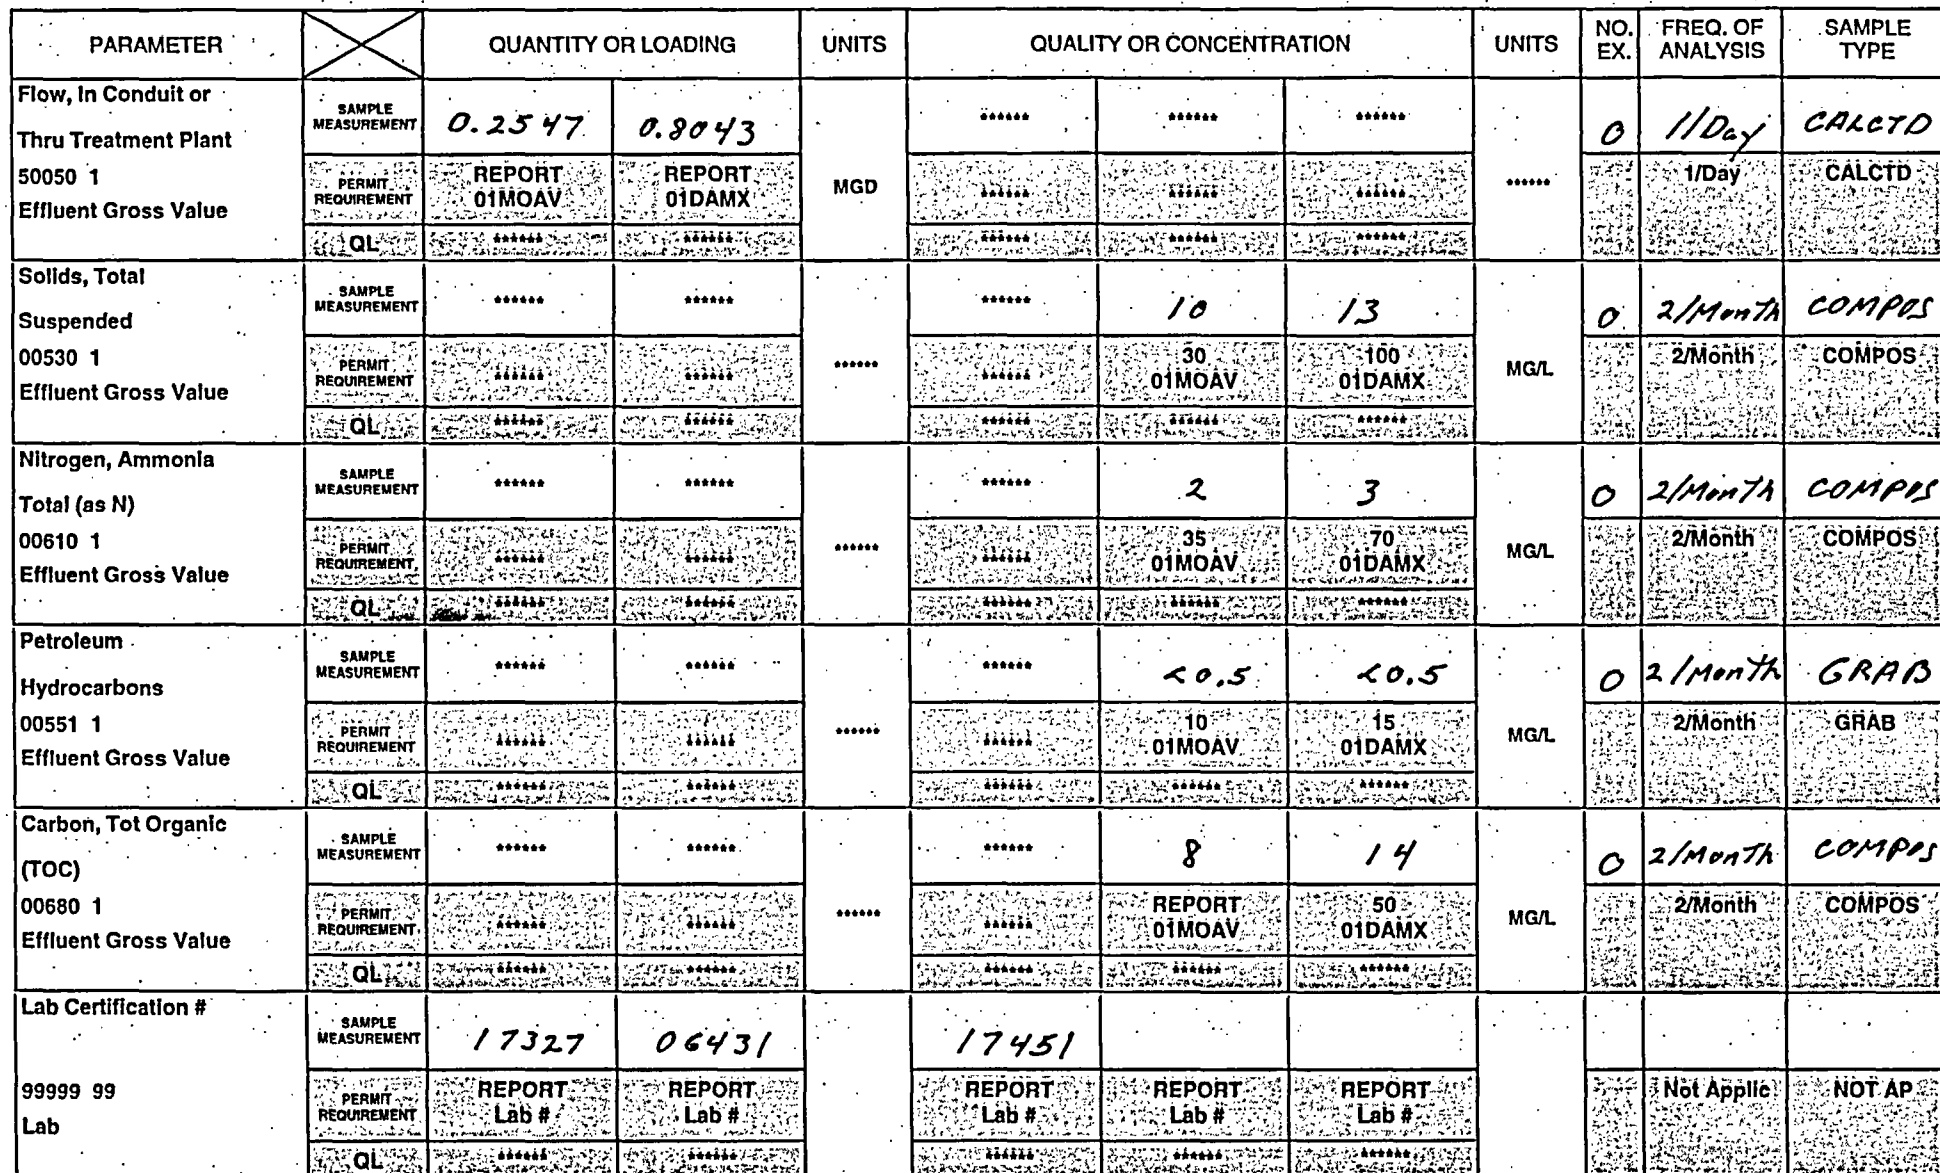 PARAMETER QUANTITY OR LOADING UNITS QUALITY OR CONCENTRATION UNITS NO. EX. FREQ. OF ANALYSIS SAMPLE TYPE
Flow, In Conduit or
Thru Treatment Plant
50050 1
Effluent Gross Value
SAMPLE MEASUREMENT 0.2547 0.8043 MGD ****** ****** ****** ****** 0 1/Day CALCTD
PERMIT REQUIREMENT REPORT 01MOAV REPORT 01DAMX ****** ****** ****** 1/Day CALCTD
QL ****** ****** ****** ****** ******
Solids, Total
Suspended
00530 1
Effluent Gross Value
SAMPLE MEASUREMENT ****** ****** ****** ****** 10 13 MG/L 0 2/Month COMPOS
PERMIT REQUIREMENT ****** ****** ****** 30 01MOAV 100 01DAMX 2/Month COMPOS
QL ****** ****** ****** ****** ******
Nitrogen, Ammonia
Total (as N)
00610 1
Effluent Gross Value
SAMPLE MEASUREMENT ****** ****** ****** ****** 2 3 MG/L 0 2/Month COMPOS
PERMIT REQUIREMENT ****** ****** ****** 35 01MOAV 70 01DAMX 2/Month COMPOS
QL ****** ****** ****** ****** ******
Petroleum
Hydrocarbons
00551 1
Effluent Gross Value
SAMPLE MEASUREMENT ****** ****** ****** ****** <0.5 <0.5 MG/L 0 2/Month GRAB
PERMIT REQUIREMENT ****** ****** ****** 10 01MOAV 15 01DAMX 2/Month GRAB
QL ****** ****** ****** ****** ******
Carbon, Tot Organic
(TOC)
00680 1
Effluent Gross Value
SAMPLE MEASUREMENT ****** ****** ****** ****** 8 14 MG/L 0 2/Month COMPOS
PERMIT REQUIREMENT ****** ****** ****** REPORT 01MOAV 50 01DAMX 2/Month COMPOS
QL ****** ****** ****** ****** ******
Lab Certification #
99999 99
Lab
SAMPLE MEASUREMENT 17327 06431 17451
PERMIT REQUIREMENT REPORT Lab # REPORT Lab # REPORT Lab # REPORT Lab # REPORT Lab # Not Applic NOT AP
QL ****** ****** ****** ****** ******